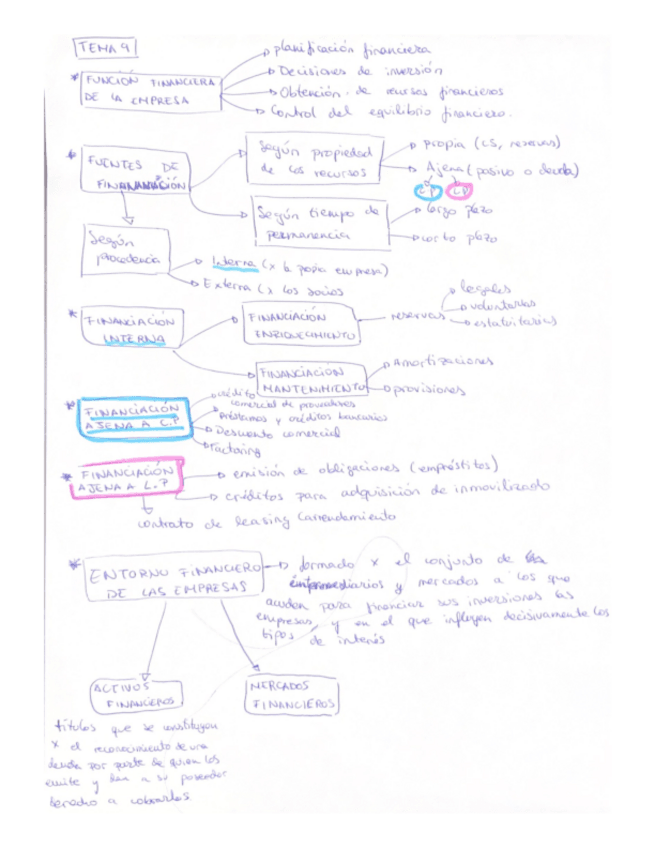 TEMA 9
* FUNCIÓN FINANCIERA
DE LA EMPRESA
planificación financiera
Decisiones de inversión
Obtención de recursos financieros
Control del equilibrio financiero.
* FUENTES DE
FINANCIACIÓN
Según propiedad
de los recursos
Propia (CS, reservas)
Ajena (pasivo o deuda)
CP LP
Según tiempo de
permanencia
largo plazo
corto plazo
Según
procedencia
Interna (x la propia empresa)
Externa (x los socios
* FINANCIACIÓN
INTERNA
FINANCIACIÓN
ENRIQUECIMIENTO
reservas
legales
voluntarias
estatutarias
FINANCIACIÓN
MANTENIMIENTO
Amortizaciones
provisiones
* FINANCIACIÓN
AJENA A C.P
crédito
comercial de proveedores
préstamos y créditos bancarios
Descuento comercial
Factoring
* FINANCIACIÓN
AJENA A L.P
emisión de obligaciones (empréstitos)
créditos para adquisición de inmovilizado
contrato de leasing (arrendamiento
* ENTORNO FINANCIERO
DE LAS EMPRESAS
formado x el conjunto de
intermediarios y mercados a los que
acuden para financiar sus inversiones las
empresas y en el que influyen decisivamente los
tipos de interés
ACTIVOS
FINANCIEROS
MERCADOS
FINANCIEROS
títulos que se constituyen
x el reconocimiento de una
deuda por parte de quien los
emite y dan a su poseedor
derecho a cobrarlos